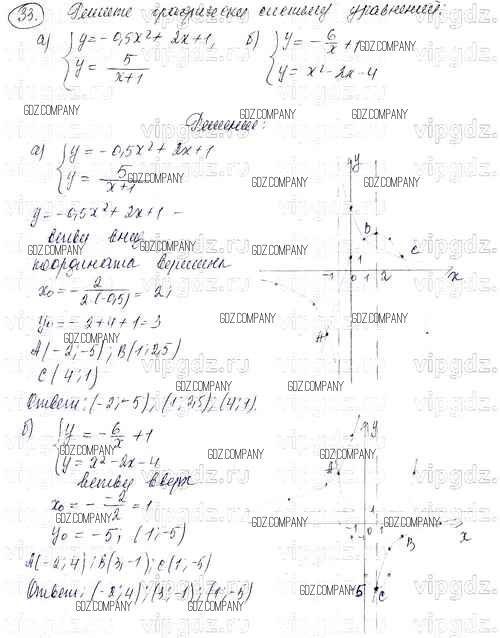 33. Решите графически систему уравнений:
а) { y = -0,5x² + 2x + 1, б) { y = - 6/x + 1
y = 5/(x+1) y = x² - 2x - 4
Решение:
а) { y = -0,5x² + 2x + 1
y = 5/(x+1)
y = -0,5x² + 2x + 1 -
ветви вниз
координата вершины
x₀ = - 2/(2·(-0,5)) = 2;
y₀ = -2 + 4 + 1 = 3
A(-2; -5); B(1; 2,5)
C(4; 1)
Ответ: (-2; -5); (1; 2,5); (4; 1).
б) { y = - 6/x + 1
y = x² - 2x - 4
ветви вверх
x₀ = - -2/2 = 1
y₀ = -5; (1; -5)
A(-2; 4); B(3; -1); C(1; -5)
Ответ: (-2; 4); (3; -1); (1; -5)
y
B
C
1
-1 0 1 2 x
A
y
A
1
-1 0 1 x
B
-5 C
GDZ.COMPANY
vipgdz.ru